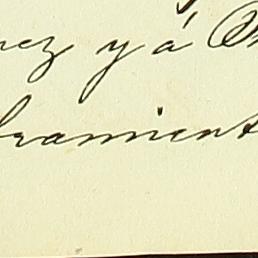 nez y á
bramient